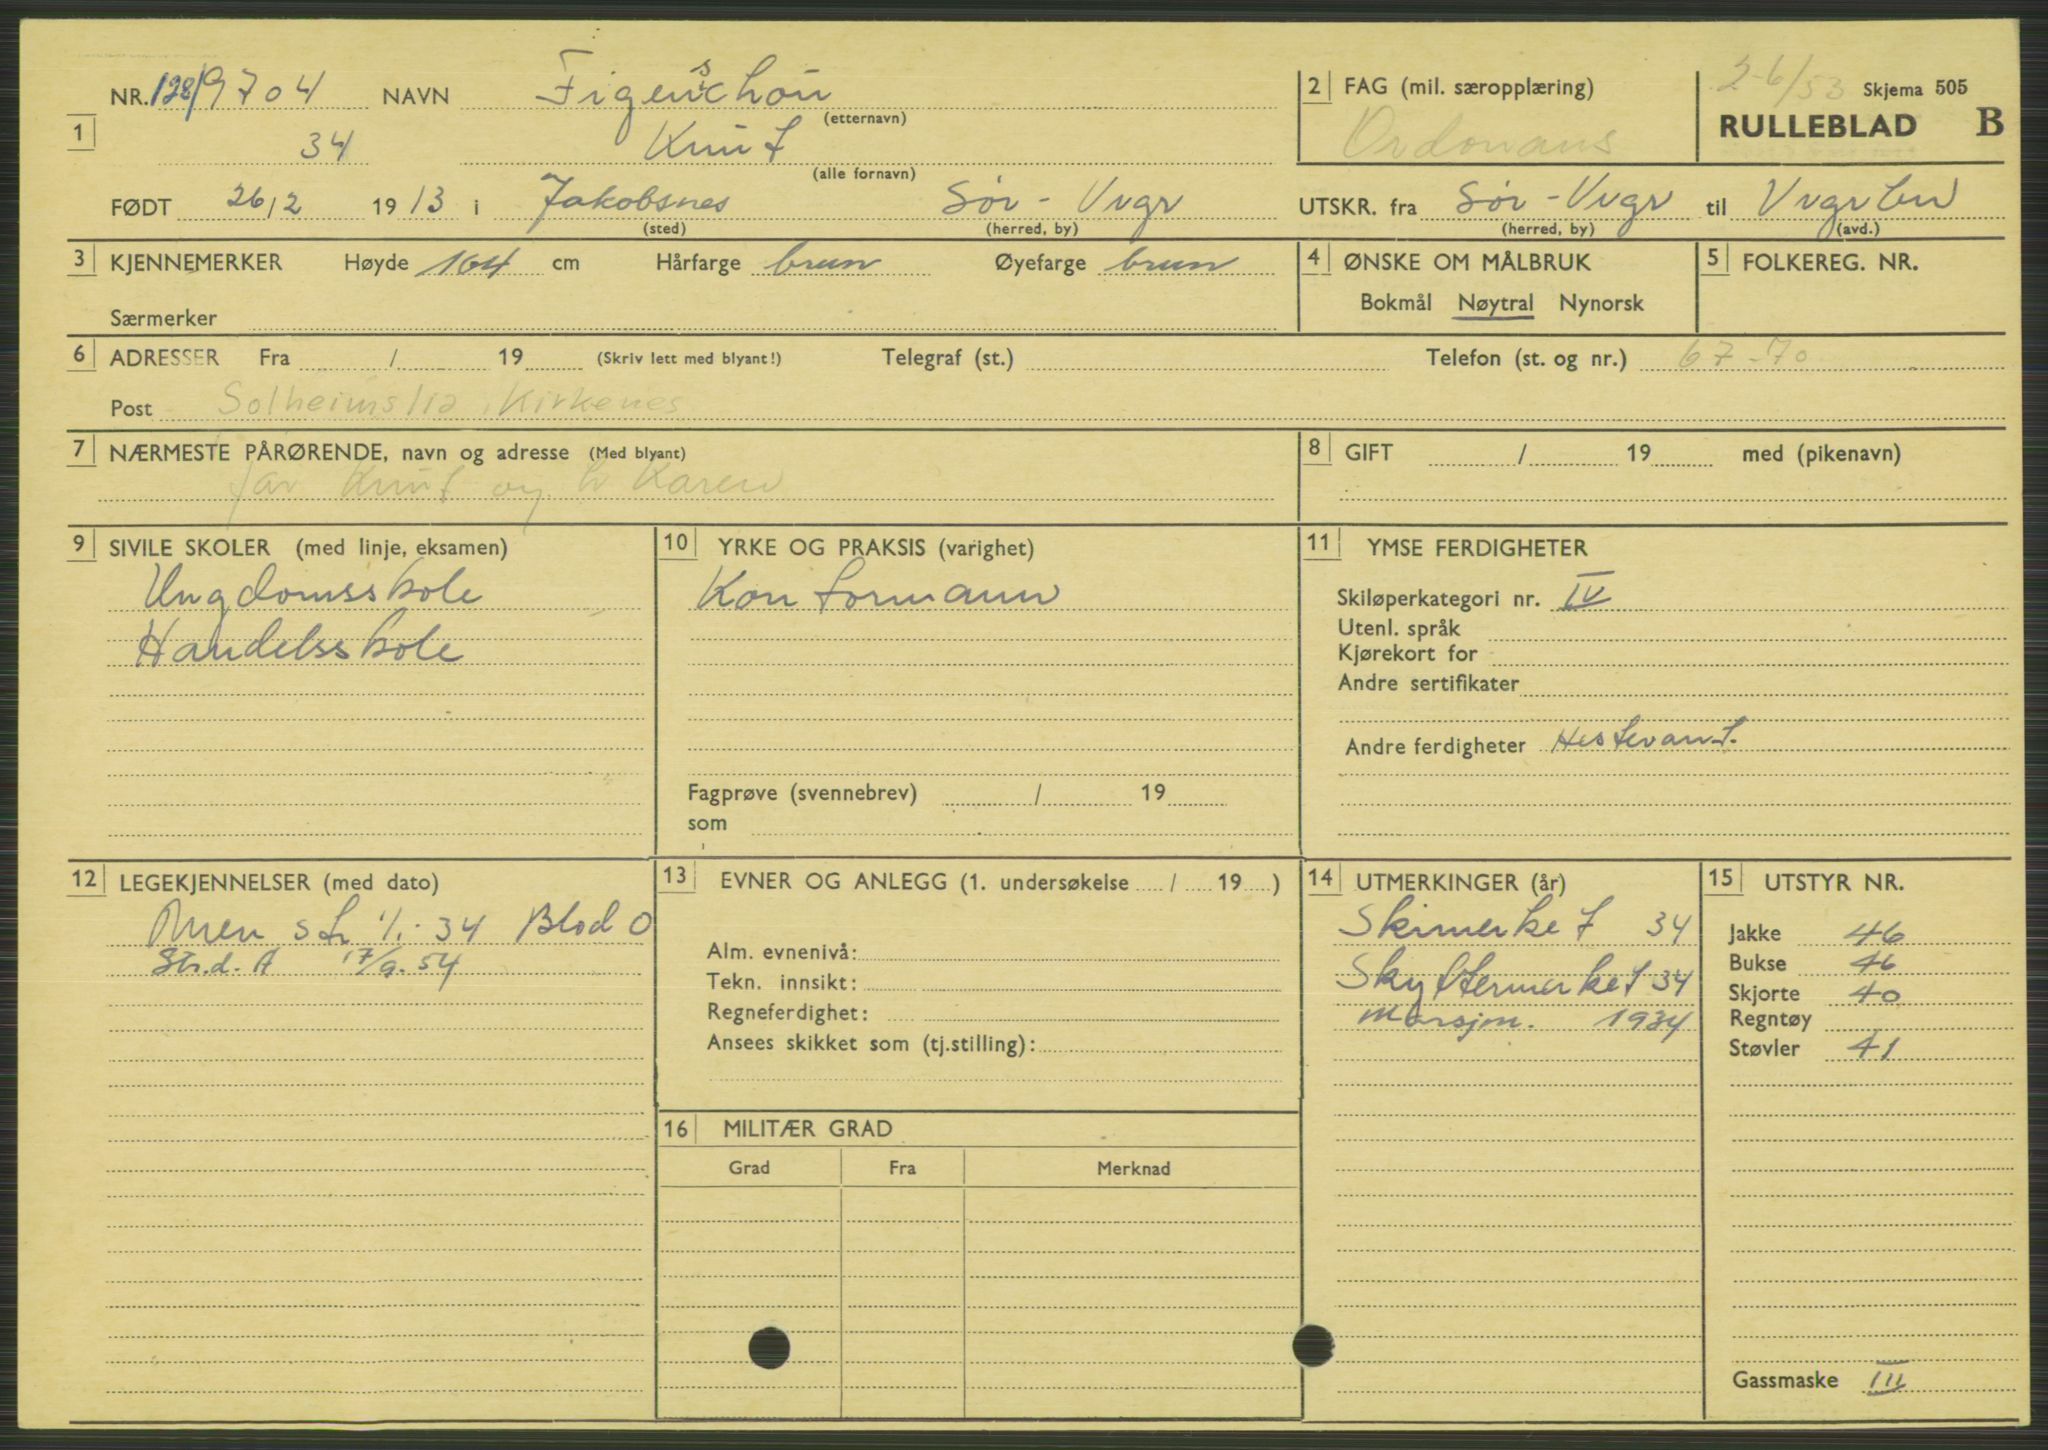 NR. 128/9704 NAVN Figenschou
(etternavn)
1 34 Knut
(alle fornavn)
FØDT 26/2 1913 i Jakobsnes Sør-Vvgr
(sted) (herred, by)
2 FAG (mil. særopplæring)
Ordonans
2-6/53 Skjema 505
RULLEBLAD B
UTSKR. fra Sør-Vvgr til Vvgrbn
(herred, by) (avd.)
3 KJENNEMERKER Høyde 164 cm Hårfarge brun Øyefarge brun
Særmerker
4 ØNSKE OM MÅLBRUK
Bokmål Nøytral Nynorsk
5 FOLKEREG. NR.
6 ADRESSER Fra / 19 (Skriv lett med blyant!) Telegraf (st.) Telefon (st. og nr.) 67-70
Post Solheimslia, Kirkenes
7 NÆRMESTE PÅRØRENDE, navn og adresse (Med blyant)
far Knut og h Karen
8 GIFT / 19 med (pikenavn)
9 SIVILE SKOLER (med linje, eksamen)
Ungdomsskole
Handelsskole
10 YRKE OG PRAKSIS (varighet)
Kontormann
Fagprøve (svennebrev) / 19
som
11 YMSE FERDIGHETER
Skiløperkategori nr. IV
Utenl. språk
Kjørekort for
Andre sertifikater
Andre ferdigheter Hestevant.
12 LEGEKJENNELSER (med dato)
34 Blod O
Str.d. A 17/9.54
13 EVNER OG ANLEGG (1. undersøkelse / 19 )
Alm. evnenivå:
Tekn. innsikt:
Regneferdighet:
Ansees skikket som (tj.stilling):
14 UTMERKINGER (år)
Skimerket 34
Skyttermerket 34
Marsjm. 1934
15 UTSTYR NR.
Jakke 46
Bukse 46
Skjorte 40
Regntøy
Støvler 41
Gassmaske III
16 MILITÆR GRAD
Grad Fra Merknad